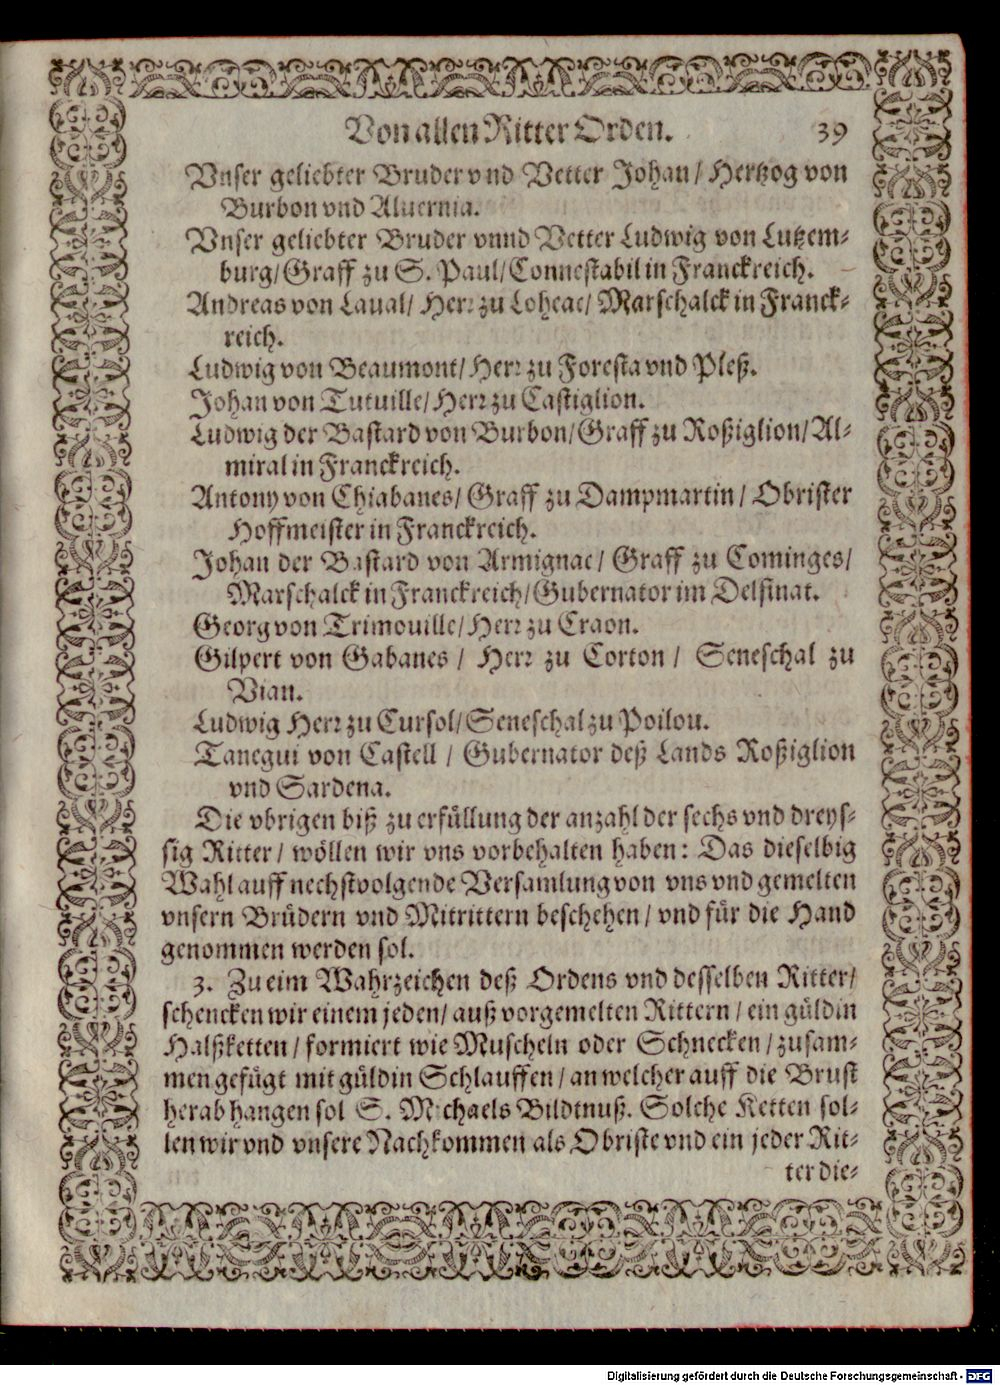 Von allen Ritter Orden. 39
Vnser geliebter Bruder vnd Vetter Johan/ Hertzog von
Burbon vnd Aluernia.
Vnser geliebter Bruder vnnd Vetter Ludwig von Lutzem-
burg/Graff zu S. Paul/Connestabil in Franckreich.
Andreas von Laual/ Herr zu Loheac/ Marschalck in Franck-
reich.
Ludwig von Beaumont/Herr zu Foresta vnd Pleß.
Johan von Tutuille/Herr zu Castiglion.
Ludwig der Bastard von Burbon/Graff zu Roßiglion/Al-
miral in Franckreich.
Antony von Chiabanes/ Graff zu Dampmartin/ Obrister
Hoffmeister in Franckreich.
Johan der Bastard von Armignac/ Graff zu Cominges/
Marschalck in Franckreich/Gubernator im Delfinat.
Georg von Trimouille/Herr zu Craon.
Gilpert von Gabanes / Herr zu Corton / Seneschal zu
Vian.
Ludwig Herr zu Cursol/Seneschal zu Poilou.
Tanegui von Castell / Gubernator deß Lands Roßiglion
vnd Sardena.
Die vbrigen biß zu erfüllung der anzahl der sechs vnd dreys-
sig Ritter/ wöllen wir vns vorbehalten haben: Das dieselbig
Wahl auff nechstvolgende Versamlung von vns vnd gemelten
vnsern Brüdern vnd Mitrittern beschehen/ vnd für die Hand
genommen werden sol.
3. Zu eim Wahrzeichen deß Ordens vnd desselben Ritter/
schencken wir einem jeden/ auß vorgemelten Rittern/ ein güldin
Halßketten/ formiert wie Muscheln oder Schnecken/ zusam-
men gefügt mit güldin Schlauffen/ an welcher auff die Brust
herab hangen sol S. Michaels Bildtnuß. Solche Ketten sol-
len wir vnd vnsere Nachkommen als Obriste vnd ein jeder Rit-
ter die-
Digitalisierung gefördert durch die Deutsche Forschungsgemeinschaft - DFG